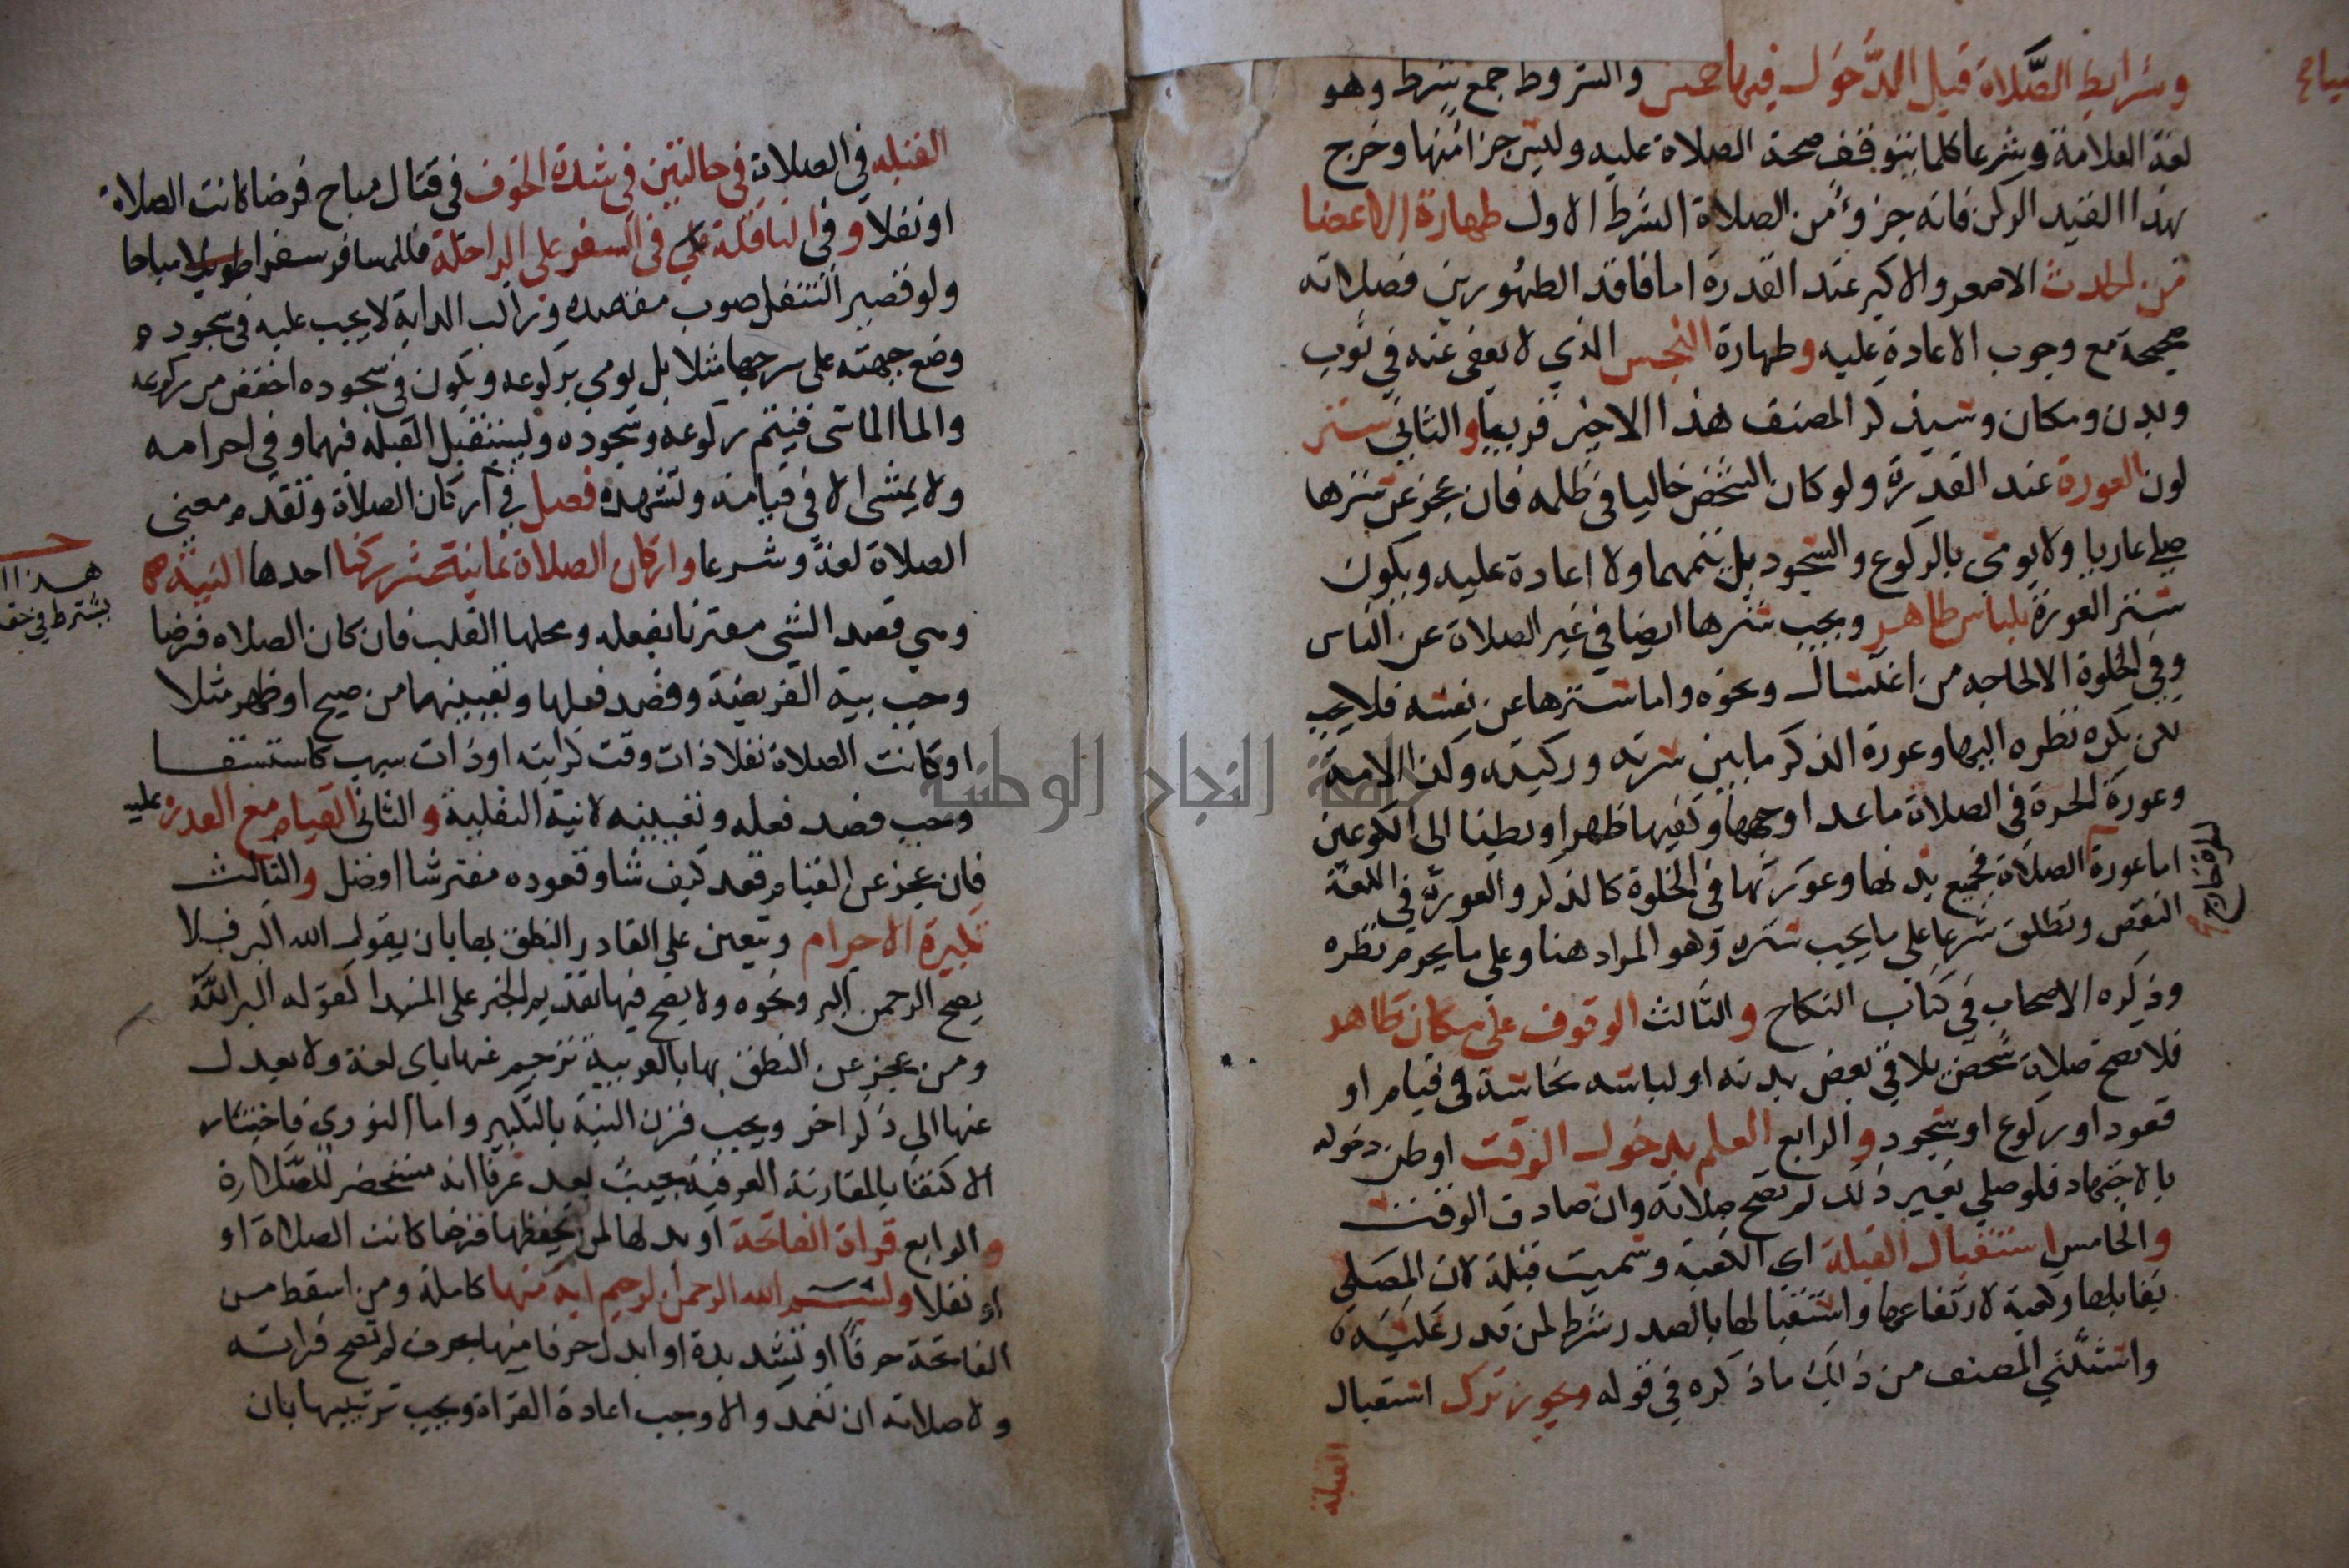 وشرايط الصَّلاة قبل الدَّخول فيها خمس والشروط جمع شرط وهو
لغة العلامة وشرعا كلما يتوقف صحة الصلاة عليه وليس جزا منها وخرج
بهذا القيد الركن فانه جزؤ من الصلاة الشرط الاول طهارة الاعضا
من الحدث الاصغر والاكبر عند القدرة اما فاقد الطهورين فصلاته
صحيحة مع وجوب الاعادة عليه وطهارة النجس الذي لا يعفى عنه في ثوب
وبدن ومكان وسيذكر المصنف هذا الاخير قريبا والثاني ستر
لون العورة عند القدرة ولو كان الشخص خاليا في ظلمه فان عجز عن سترها
صلى عاريا ولا يومي بالركوع والسجود بل يتمهما ولا اعادة عليه ويكون
ستر العورة بلباس طاهر ويجب سترها ايضا في غير الصلاة عن الناس
وفي الخلوة الا لحاجه من اغتسال ونحوه واما سترها عن نفسه فلا يجب
لكن يكره نظره اليها وعورة الذكر ما بين سرته وركبته وكذا الامة
وعورة الحرة في الصلاة ما عدا وجهها وكفيها ظهرا وبطنا الى الكوعين
اما عورة الصلاة فجميع بدنها وعورتها في الخلوة كالذكر والعورة في اللغة
النقص وتطلق شرعا على ما يجب ستره وهو المراد هنا وعلى ما يحرم نظره
وذكره الاصحاب في كتاب النكاح والثالث الوقوف على مكان طاهر
فلا تصح صلاة شخص يلاقي بعض بدنه او لباسه نجاسة في قيام او
قعود او ركوع او سجود والرابع العلم بدخول الوقت او ظن دخوله
بالاجتهاد فلو صلى بغير ذلك لم تصح صلاته وان صادف الوقت
والخامس استقبال القبلة اي الكعبة وسميت قبلة لان المصلي
يقابلها وكعبة لارتفاعها واستقبالها بالصدر شرط لمن قدر عليه
واستثنى المصنف من ذلك ما ذكره في قوله ويجوز ترك استقبال
القبلة
خارج
القبله في الصلاة في حالتين في شدة الخوف في قتال مباح فرضا كانت الصلاة
او نفلا وفي النافلة في السفر على الراحلة فللمسافر سفرا طويلا مباحا
ولو قصير التنفل صوب مقصده وراكب الدابة لا يجب عليه في سجوده
وضع جبهته على سرجها مثلا بل يومي بركوعه ويكون في سجوده اخفض من ركوعه
واما الماشى فيتم ركوعه وسجوده ويستقبل القبله فيهما وفي احرامه
ولا يمشى الا في قيامه وتشهده فصل في اركان الصلاة وتقدم معنى
الصلاة لغة وشرعا واركان الصلاة ثمانية عشر ركنا احدها النية
وهي قصد الشي مقترنا بفعله ومحلها القلب فان كان الصلاه فرضا
وجب نية الفريضة وقصد فعلها وتعيينها من صبح او ظهر مثلا
او كانت الصلاة نفلا ذات وقت كراتبه او ذات سبب كاستسقا
وجب قصد فعله وتعيينه لا نية النفلية والثاني القيام مع القدرة عليه
فان عجز عن القيام قعد كيف شا وقعوده مفترشا افضل والثالث
تكبيرة الاحرام ويتعين على القادر النطق بها بان يقول الله اكبر فلا
يصح الرحمن اكبر ونحوه ولا يصح فيها تقديم الخبر على المبتدا كقوله اكبر الله
ومن عجز عن النطق بها بالعربية ترجم عنها باى لغة ولا يعدل
عنها الى ذكر اخر ويجب قرن النية بالتكبير واما النووي فاختار
الاكتفا بالمقارنة العرفية بحيث يعد عرفا انه مستحضر للصلاة
والرابع قراة الفاتحة او بدلها لمن لم يحفظها فرضا كانت الصلاة او
او نفلا وبسم الله الرحمن الرحيم اية منها كاملة ومن اسقط من
الفاتحة حرفا او تشديدة او ابدل حرفا منها بحرف لم تصح قراته
ولا صلاته ان تعمد والا وجب اعادة القراة ويجب ترتيبها بان
هذا
يشترط في حق